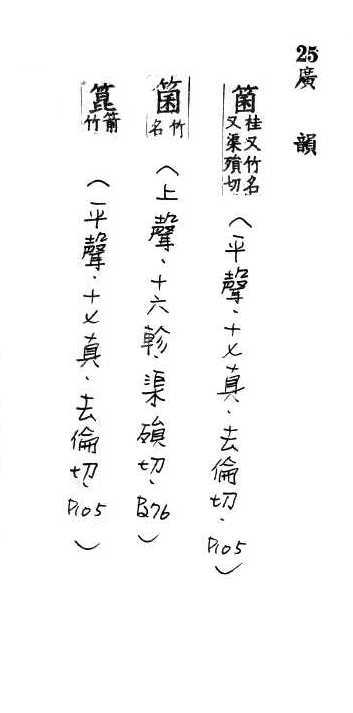 25廣韻
箘 桂又竹名又渠殞切 (平聲、十七真、去倫切、P105)
箘 竹名 (上聲、十六軫、渠殞切、P276)
箟 箭竹 (平聲、十七真、去倫切、P105)